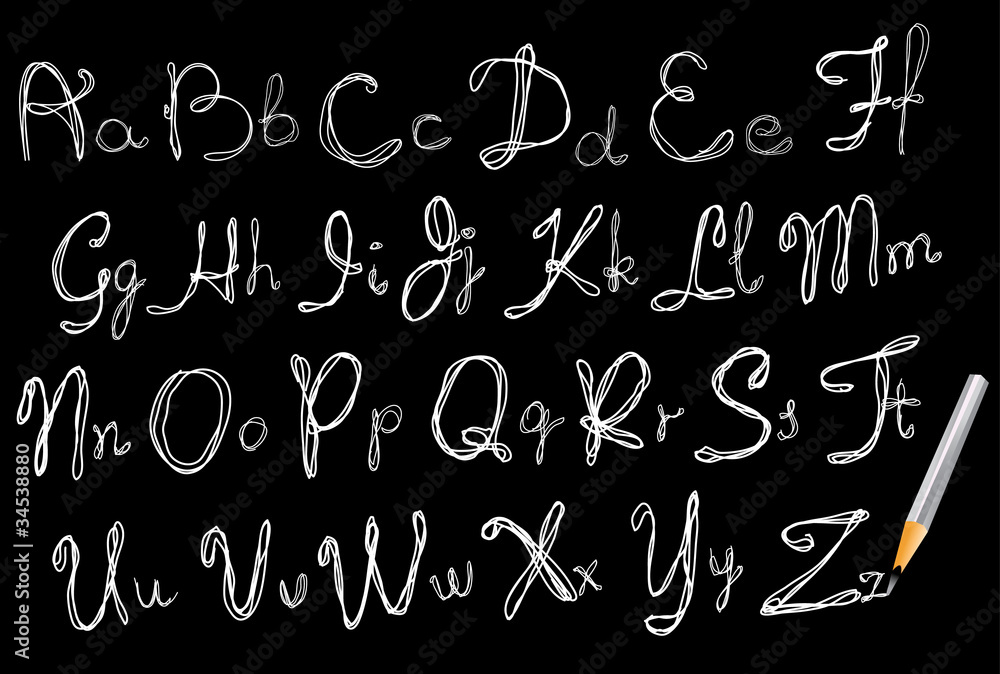 Aa Bb Cc Dd Ee Ff
Gg Hh Ii Jj Kk Ll Mm
Nn Oo Pp Qq Rr Ss Tt
Uu Vv Ww Xx Yy Zz
Adobe Stock | #34538880